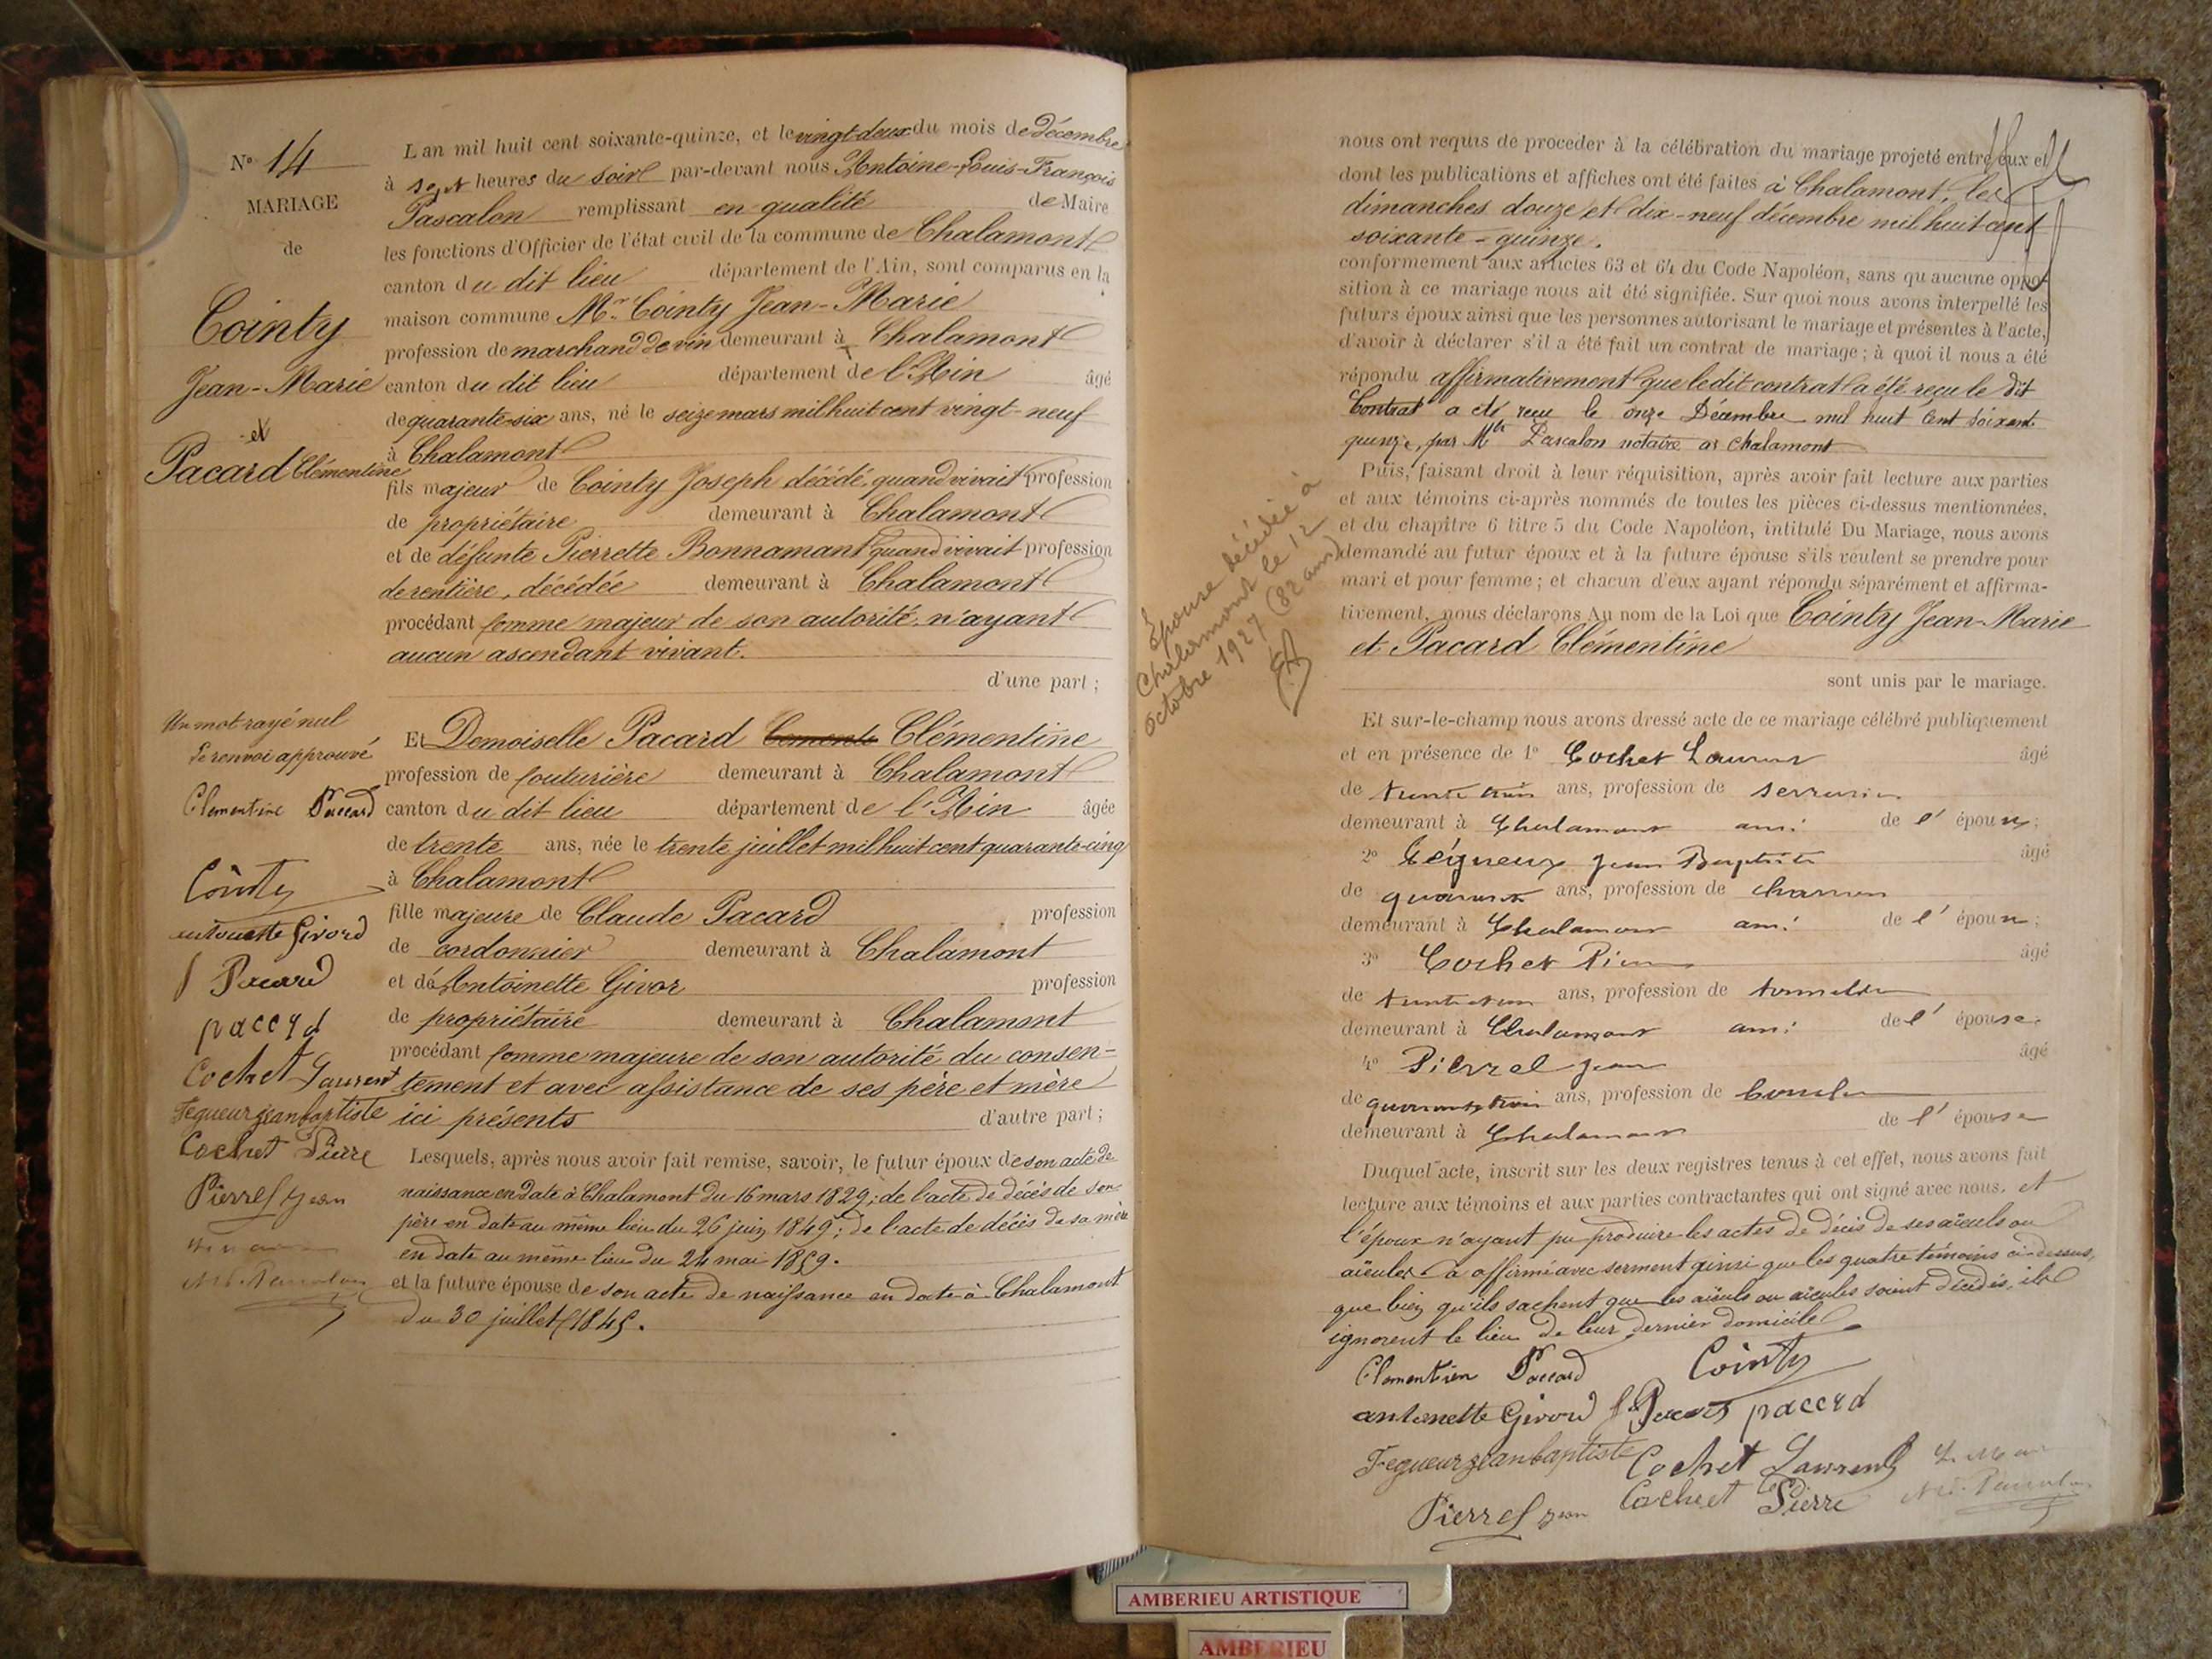 N° 14
MARIAGE
de
Cointy
Jean-Marie
et
Pacard Clémentine
L'an mil huit cent soixante-quinze, et le vingt-deux du mois de Décembre
à sept heures du soir par-devant nous Antoine-Louis-François
Pascalon remplissant en qualité de Maire
les fonctions d'Officier de l'état civil de la commune de Chalamont
canton du dit lieu département de l'Ain, sont comparus en la
maison commune Mr. Cointy Jean-Marie
profession de marchand de vin demeurant à Chalamont
canton du dit lieu département de l'Ain âgé
de quarante-six ans, né le seize mars mil huit cent vingt-neuf
à Chalamont
fils majeur de Cointy Joseph décédé, quand vivait profession
de propriétaire demeurant à Chalamont
et de défunte Pierrette Bonnamant quand vivait profession
de rentière, décédée demeurant à Chalamont
procédant comme majeur de son autorité, n'ayant
aucun ascendant vivant.
d'une part ;
Un mot rayé nul
Le renvoi approuvé
Clementine Paccard
Cointy
antonette Givord
Pacard
paccrd
Cochet Laurent
Fegueur jean baptiste
Cochet Pierre
Pierrel Jean
Et Demoiselle Pacard Clémentine
profession de couturière demeurant à Chalamont
canton du dit lieu département de l'Ain âgée
de trente ans, née le trente juillet mil huit cent quarante-cinq
à Chalamont
fille majeure de Claude Pacard profession
de cordonnier demeurant à Chalamont
et de Antoinette Givor profession
de propriétaire demeurant à Chalamont
procédant comme majeure de son autorité du consen-
tement et avec assistance de ses père et mère
ici présents d'autre part ;
Lesquels, après nous avoir fait remise, savoir, le futur époux de son acte de
naissance en date à Chalamont du 16 mars 1829 ; de l'acte de décès de son
père en date au même lieu du 26 juin 1849 ; de l'acte de décès de sa mère
en date au même lieu du 24 mai 1859.
et la future épouse de son acte de naissance en date à Chalamont
du 30 juillet 1845.
Épouse décédée à
Chalamont le 12
octobre 1927 (82 ans)
nous ont requis de proceder à la célébration du mariage projeté entre eux et
dont les publications et affiches ont été faites à Chalamont, les
dimanches douze et dix-neuf décembre mil huit cent
soixante-quinze.
conformement aux articles 63 et 64 du Code Napoléon, sans qu'aucune oppo-
sition à ce mariage nous ait été signifiée. Sur quoi nous avons interpellé les
futurs époux ainsi que les personnes autorisant le mariage et présentes à l'acte,
d'avoir à déclarer s'il a été fait un contrat de mariage ; à quoi il nous a été
répondu affirmativement que ledit contrat a été reçu le dit
Contrat a été reçu le onze Décembre mil huit Cent soixante
quinze, par Mtr Pascalon notaire a chalamont
Puis, faisant droit à leur réquisition, après avoir fait lecture aux parties
et aux témoins ci-après nommés de toutes les pièces ci-dessus mentionnées,
et du chapitre 6 titre 5 du Code Napoléon, intitulé Du Mariage, nous avons
demandé au futur époux et à la future épouse s'ils veulent se prendre pour
mari et pour femme ; et chacun d'eux ayant répondu séparément et affirma-
tivement, nous déclarons Au nom de la Loi que Cointy Jean-Marie
et Pacard Clémentine
sont unis par le mariage.
Et sur-le-champ nous avons dressé acte de ce mariage célébré publiquement
et en présence de 1° Cochet Laurent âgé
de trente trois ans, profession de serrurier
demeurant à Chalamont ami de l'époux ;
2° Jean Baptiste âgé
de quarante ans, profession de charron
demeurant à Chalamont ami de l'époux ;
3° Cochet Pierre âgé
de ans, profession de
demeurant à Chalamont ami de l'épouse.
4° Pierrel Jean âgé
de quarante trois ans, profession de
demeurant à Chalamont de l'épouse
Duquel acte, inscrit sur les deux registres tenus à cet effet, nous avons fait
lecture aux témoins et aux parties contractantes qui ont signé avec nous. et
l'époux n'ayant pu produire les actes de décès de ses aïeuls ou
aïeules a affirmé avec serment ainsi que les quatre témoins ci-dessus,
que bien qu'ils sachent que les aïeuls ou aïeules soient décédés, ils
ignorent le lieu de leur dernier domicile
Clementien Paccard Cointy
antonette Givord Pacard paccrd
Fegueur jean baptiste Cochet Laurent
Pierrel Jean Cochet Pierre
AMBERIEU ARTISTIQUE
AMBERIEU